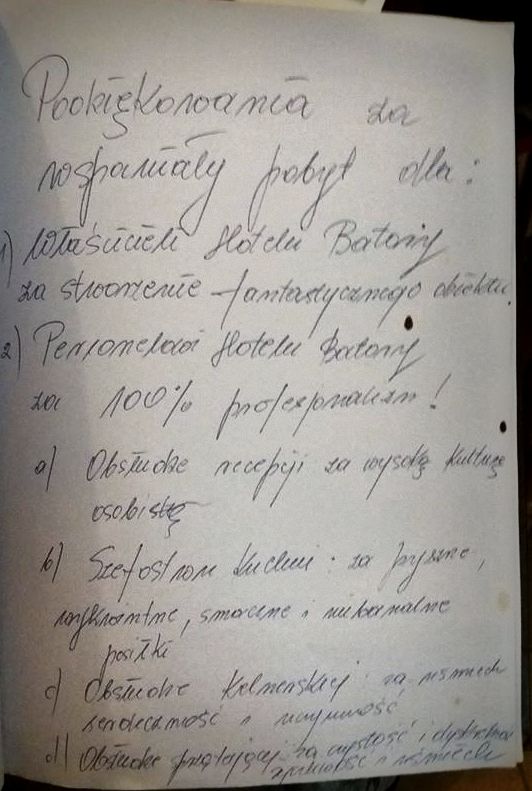 Podziękowania za
wspaniały pobyt dla:
1) Właścicieli Hotelu Batory
za stworzenie fantastycznego obiektu.
2) Personelowi Hotelu Batory
za 100% profesjonalizm!
a) Obsłudze recepcji za wysoką kulturę
osobistą
b) Szefostwu kuchni: za pyszne,
wykwintne, smaczne i niebanalne
posiłki
c) Obsłudze kelnerskiej: za uśmiech
serdeczność i uczynność
d) Obsłudze sprzątającej: za czystość i dyskretną
i uśmiech